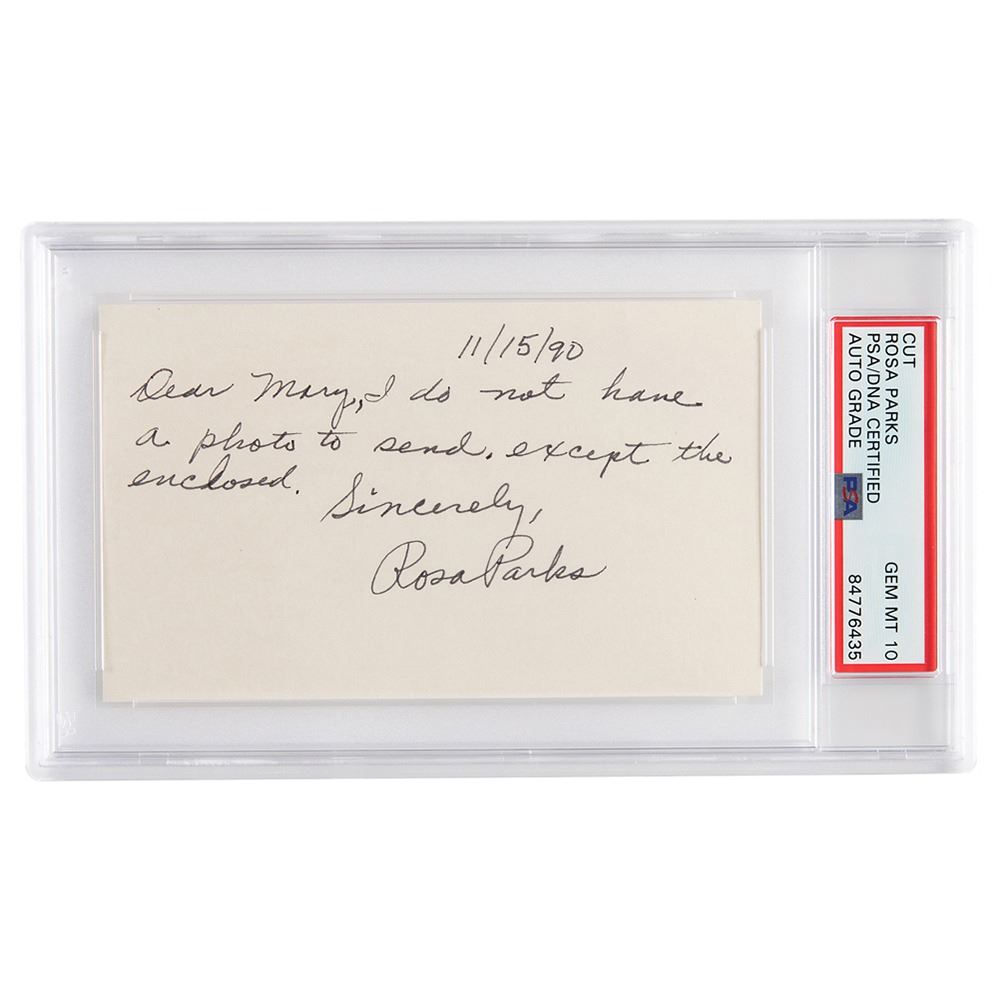 11/15/90
Dear Mary, I do not have
a photo to send. except the
enclosed.
Sincerely,
Rosa Parks
CUT
ROSA PARKS
PSA/DNA CERTIFIED
AUTO GRADE GEM MT 10
PSA
84776435